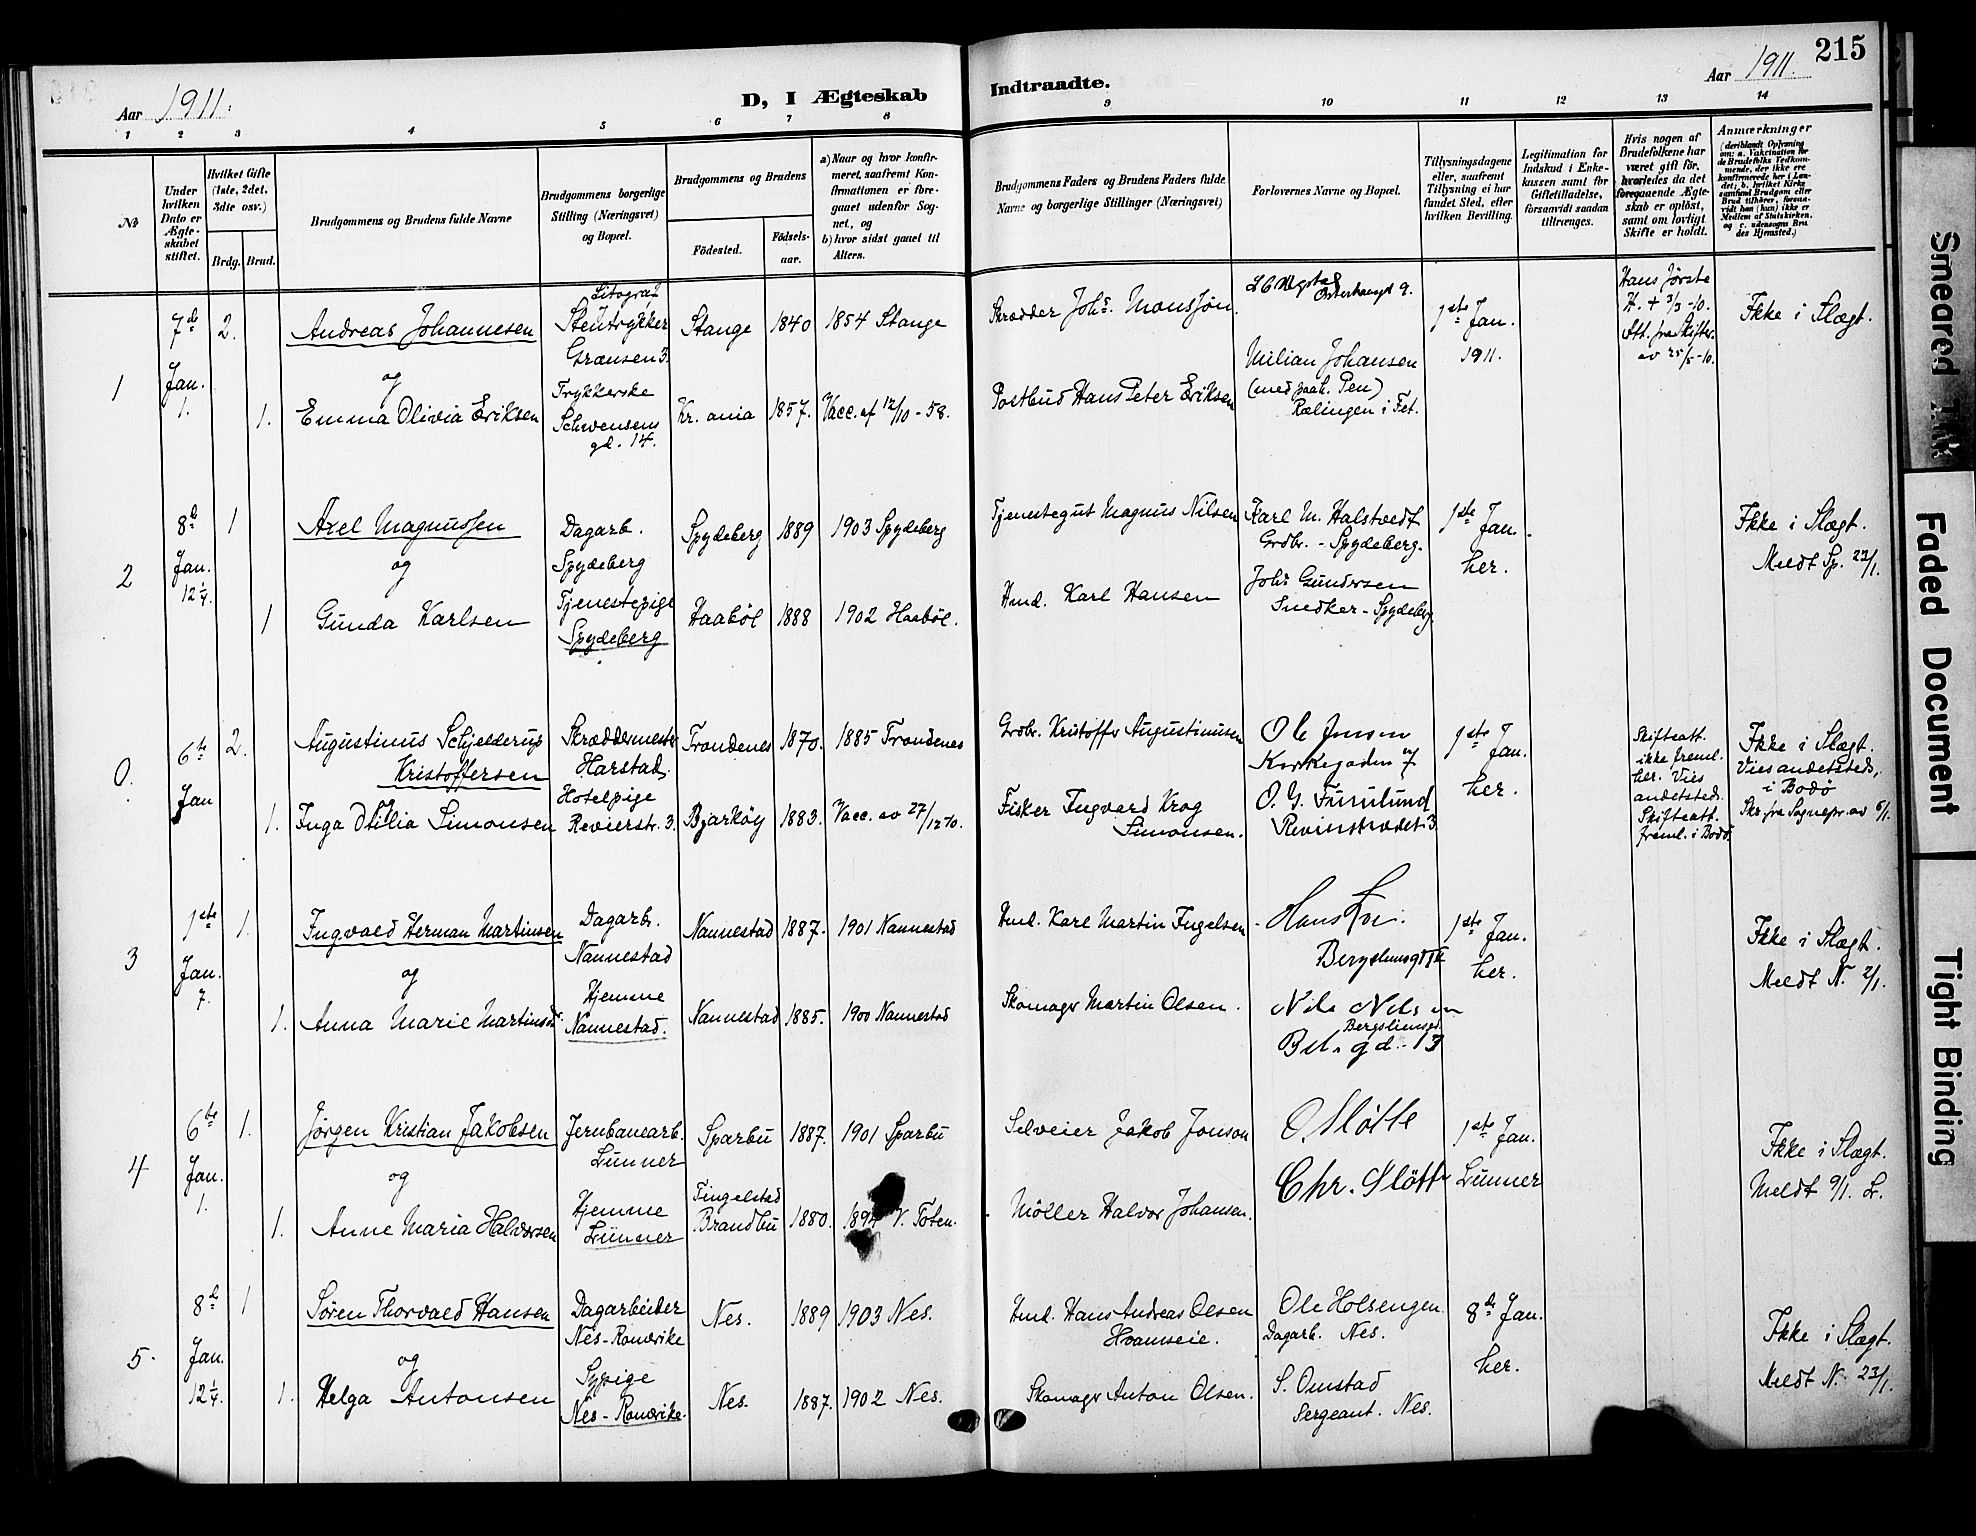 Aar 1911.
D, I Ægteskab Indtraadte.
Aar 1911.
215
1 2 3 4 5 6 7 8 9 10 11 12 13 14
№
Under hvilken Dato er Ægteskabet stiftet.
Hvilket Gifte (1ste, 2det, 3die osv.)
Brdg. Brud.
Brudgommens og Brudens fulde Navne
Brudgommens borgerlige Stilling (Næringsvei) og Bopæl.
Brudgommens og Brudens
Födested.
Födsels-aar.
a) Naar og hvor konfirmeret, saafremt Konfirmationen er foregaaet udenfor Sognet, og
b) hvor sidst gaaet til Alters.
Brudgommens Faders og Brudens Faders fulde Navne og borgerlige Stillinger (Næringsvei)
Forlovernes Navne og Bopæl.
Tillysningsdagene eller, saafremt Tillysning ei har fundet Sted, efter hvilken Bevilling.
Legitimation for Indskud i Enkekassen samt for Giftetilladelse, forsaavidt saadan tiltrænges.
Hvis nogen af Brudefolkene har været gift för, hvorledes da det foregaaende Ægteskab er oplöst, samt om lovligt Skifte er holdt.
Anmærkninger (deriblandt Oplysning om: a. Vakcination for de Brudefolks Vedkommende, der ikke ere konfirmerede her i Landet; b. hvilket Kirkesamfund Brudgom eller Brud tilhörer, forsaavidt han (hun) ikke er Medlem af Statskirken, og c. udensogns Brudes Hjemsted.)
1
7de Jan. 1.
2.
Andreas Johannesen
Litograf
Stentrykker
Grænsen 3.
Stange
1840
1854 Stange
Skrædder Johs. Monssøn.
1ste Jan. 1911.
Ikke i Slægt.
og
1.
Emma Olivia Eriksen
Trykkerske
Schwensens gd. 14.
Kr.ania
1857.
Vacc. af 12/10 - 58.
Postbud Hans Peter Eriksen
Milian Johansen
(med paah. Pen)
Rælingen i Fet.
Hans første
H. + 3/3 -10.
Att. fra Skifter.
av 25/5 -10.
2
8de Jan. 12 1/4.
1
Axel Magnussen
Dagarb.
Spydeberg
Spydeberg
1889
1903 Spydeberg
Tjenestegut Magnus Nilsen
Karl M. Halstvedt
Grdbr. - Spydeberg.
1ste Jan. her.
Ikke i Slægt.
Meldt Sp. 23/1.
og
1
Gunda Karlsen
Tjenestepige
Spydeberg
Haabøl
1888
1902 Haabøl.
Hmd. Karl Hansen
Johs Gundersen
Snedker - Spydeberg
0.
6te Jan
2.
Augustinus Schjelderup
Kristoffersen
Skræddermester
Harstad.
Trondenes
1870.
1885 Trondenes
Grdbr. Kristoffer Augustinusen
Ole Jensen
Kirkegaden 7
1ste Jan. her.
Skifteatt.
ikke freml.
her. Vies
andetsteds.
Skifteatt.
freml. i Bodø
Ikke i Slægt.
Vies andetsteds,
i Bodø
Skr. fra Sognepr. av 5/1.
1.
Inga Otilia Simonsen
Hotelpige
Revierstr. 3.
Bjarkøy
1883.
Vacc. av 27/12 70.
Fisker Ingvard Krog
Simonsen.
O. G. Furulund
Revierstrædet 3
3
1ste Jan. 7.
1.
Ingvald Herman Martinsen
Dagarb.
Nannestad
Nannestad
1887.
1901 Nannestad
Hmd. Karl Martin Ingelsen
1ste Jan. her.
Ikke i Slægt.
Meldt N. 2/1.
og
1.
Anna Marie Martinsen
Hjemme
Nannestad.
Nannestad
1885.
1900 Nannestad
Skomagr Martin Olsen.
Nils Nilsen
Bergsliensgd.
13
4
6te Jan. 1.
1.
Jørgen Kristian Jakobsen
Jernbanearb.
Lunner
Sparbu
1887.
1901 Sparbu
Selveier Jakob Jonson
O. Sløtte
1ste Jan.
Lunner
Ikke i Slægt.
Meldt 9/1. L.
og
1.
Anne Maria Halvorsen
Hjemme
Lunner
Tingelstad
Brandbu
1880.
1894 V. Toten.
Møller Halvor Johansen.
Chr. Sløtte
5.
8de Jan. 12 1/4.
1
Søren Thorvald Hansen
Dagarbeider
Nes-Romerike
Nes.
1889
1903 Nes.
Hmd. Hans Andreas Olsen
Hvamseie.
Ole Holsengen
Dagarb. Nes.
8de Jan. her.
Ikke i Slægt.
Meldt N. 23/1.
og
1.
Helga Antonsen
Sypige
Nes-Romerike.
Nes.
1887.
1902 Nes.
Skomagr Anton Olsen.
S. Omstad
Sergeant. Nes.
Smeared Ink
Faded Document
Tight Binding